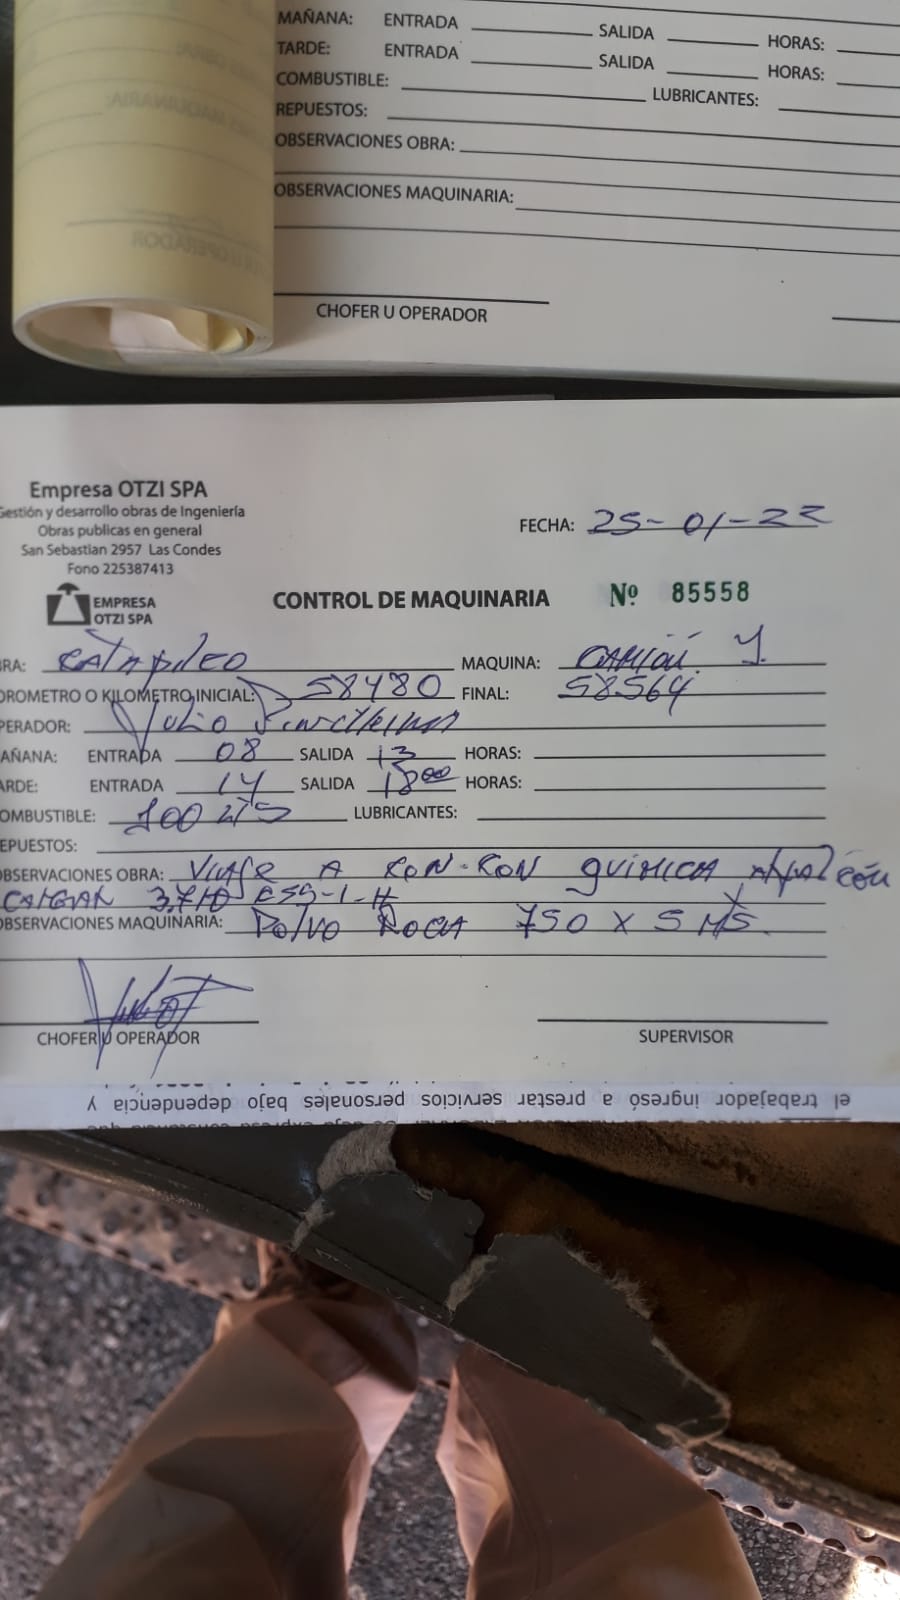 MAÑANA: ENTRADA SALIDA HORAS:
TARDE: ENTRADA SALIDA HORAS:
COMBUSTIBLE: LUBRICANTES:
REPUESTOS:
OBSERVACIONES OBRA:
OBSERVACIONES MAQUINARIA:
CHOFER U OPERADOR
Empresa OTZI SPA
Gestión y desarrollo obras de Ingeniería
Obras publicas en general
San Sebastian 2957 Las Condes
Fono 225387413
FECHA: 25-01-22
EMPRESA
OTZI SPA
CONTROL DE MAQUINARIA Nº 85558
BRA: CATAPILCO MAQUINA: CAMION 1
OROMETRO O KILOMETRO INICIAL: 58480 FINAL: 58564
PERADOR: Julio
AÑANA: ENTRADA 08 SALIDA 13 HORAS:
ARDE: ENTRADA 14 SALIDA 18 00 HORAS:
OMBUSTIBLE: 100 LTS LUBRICANTES:
EPUESTOS:
OBSERVACIONES OBRA: VIAJE A CON-CON QUIMICA
3,710 CSS-1-H
OBSERVACIONES MAQUINARIA: POLVO ROCA 750 X 5 MS
CHOFER U OPERADOR SUPERVISOR
el trabajador ingresó a prestar servicios personales bajo dependencia y